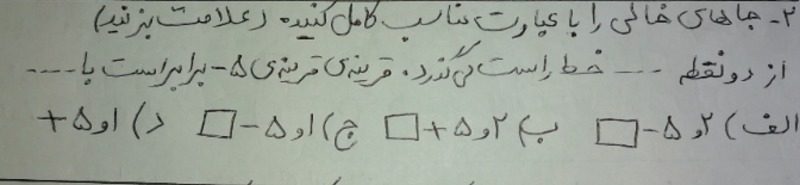 ۲- جاهای خالی را با عبارت مناسب کامل کنید. (علامت بزنید)
از دو نقطه ---- خط راست می گذرد. قرینه ی قرینه ی ۵- برابر است با ----
الف) ۲ و ۵- □ ب) ۲ و ۵+ □ ج) ۱ و ۵- □ د) ۱ و ۵+